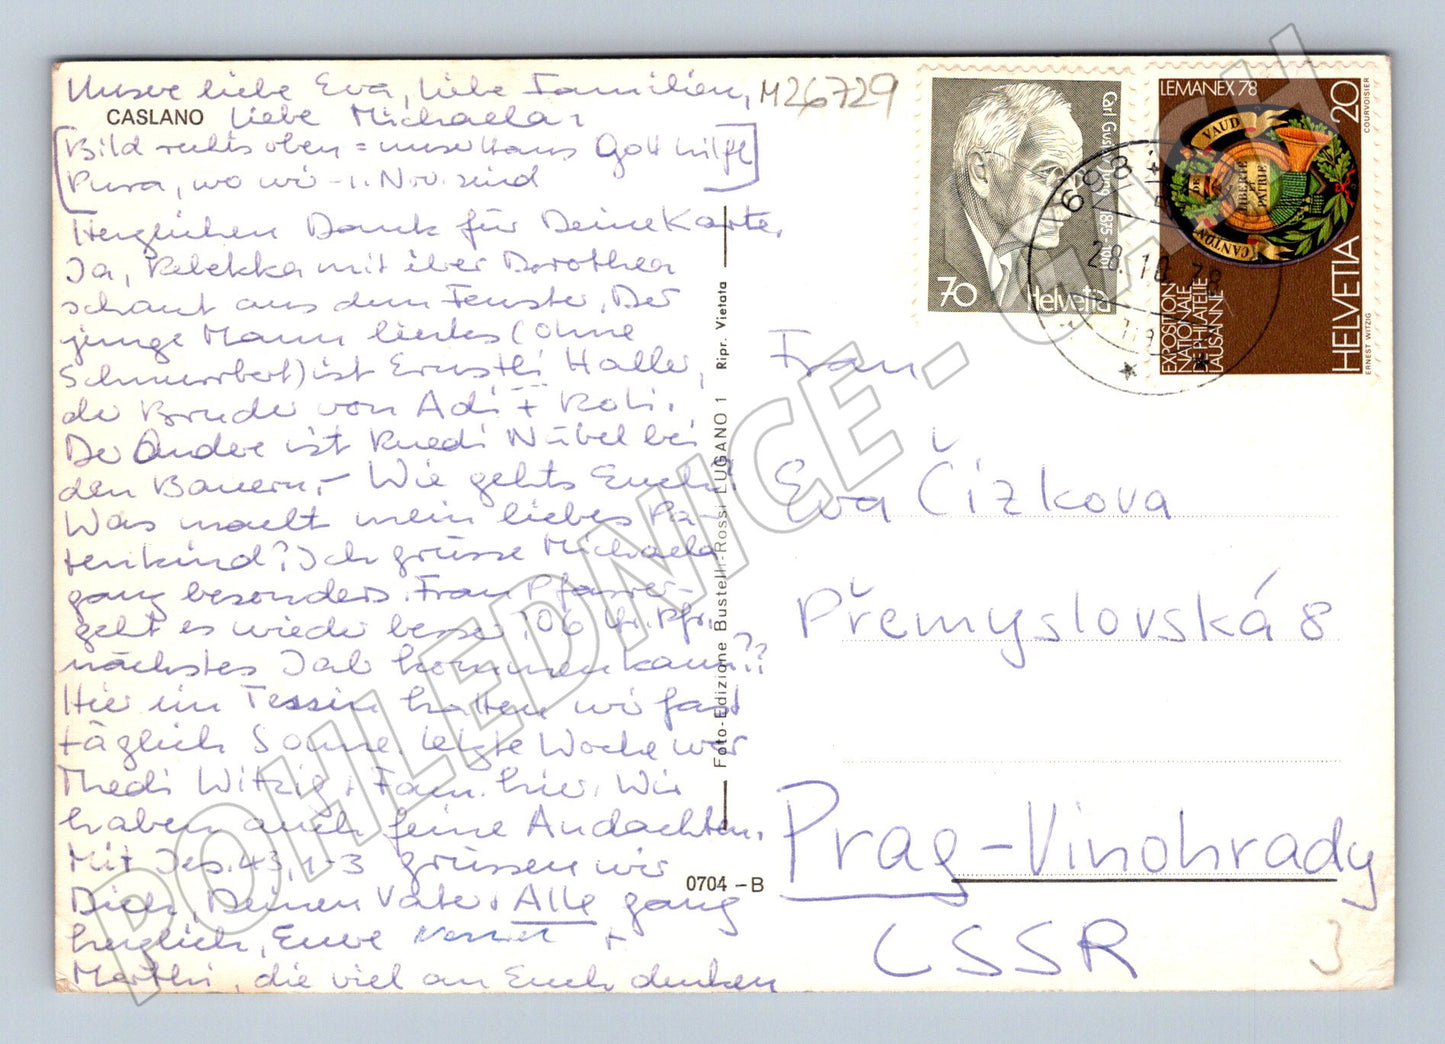 Unsere liebe Eva, liebe Familien,
CASLANO
liebe Michaela,
[Bild rechts oben = unser Haus Gott hilft]
Pura, wo wir -1. Nov. sind
Herzlichen Dank für Deine Karte.
Ja, Rebekka mit ihrer Dorothea
schaut aus dem Fenster. Der
junge Mann links (ohne
Schnurrbart) ist Ernstli Haller,
der Bruder von Adi + Köbi.
Der Andere ist Ruedi Nübel bei
den Bauern. - Wie gehts Euch?
Was macht mein liebes Pa-
tenkind? Ich grüsse Michaela
ganz besonders. Frau Pfarrer
geht es wieder besser, ob
nächstes Jahr kommen kann??
Hier im Tessin hatten wir fast
täglich Sonne. Letzte Woche war
Thedi Witzig + Fam. hier. Wir
haben auch feine Andachten.
Mit Jes. 43, 1-3 grüssen wir
Dich, Deinen Vater + Alle ganz
herzlich, Eure +
Marthi, die viel an Euch denken
M26729
Foto-Edizione Bustelli-Rossi LUGANO 1 Ripr. Vietata
0704 - B
Carl Gustav Jung 1875-1961
70 Helvetia
LEMANEX 78
CANTON DE VAUD
LIBERTÉ ET PATRIE
EXPOSITION
NATIONALE
DE PHILATELIE
LAUSANNE
HELVETIA 20
ERNEST WITZIG
COURVOISIER
28.10.78
Frau
Eva Čížkova
Přemyslovská 8
Prag-Vinohrady
ČSSR
3
POHLEDNICE - CASH